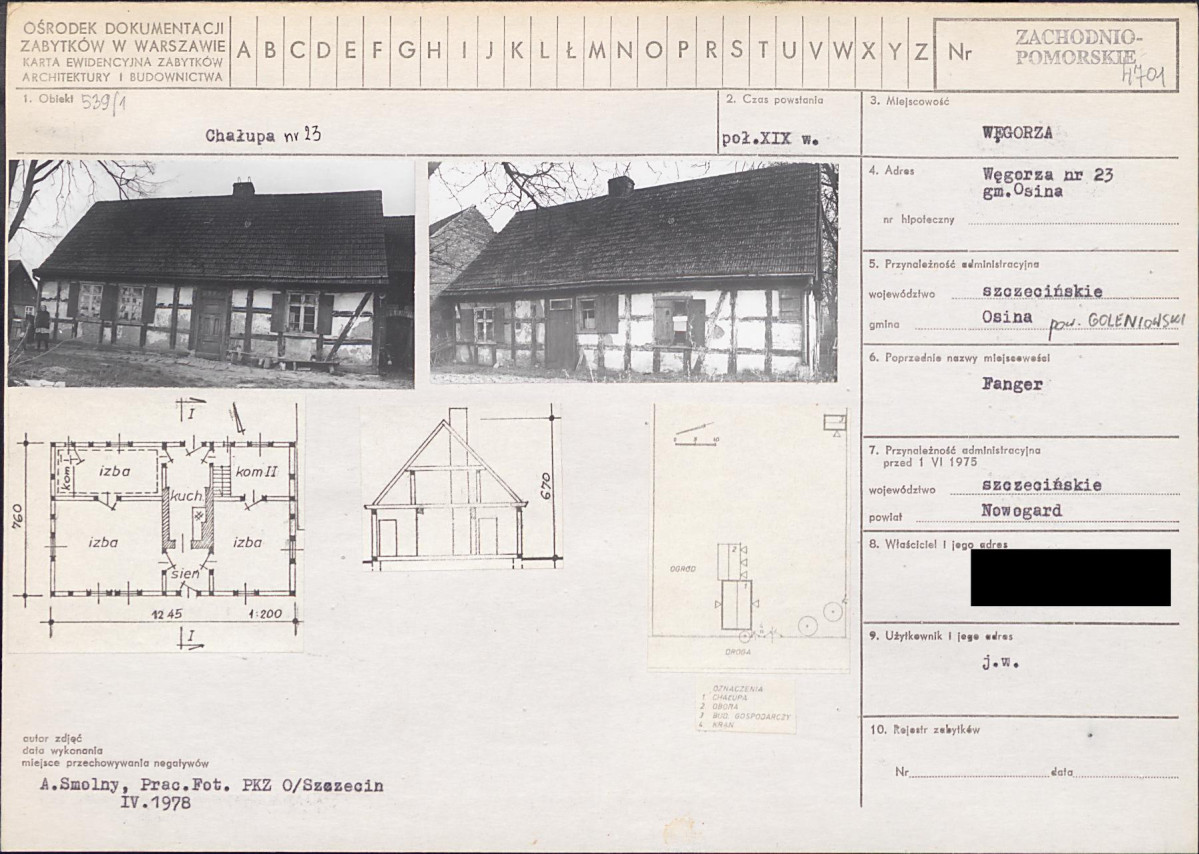 OŚRODEK DOKUMENTACJI
ZABYTKÓW W WARSZAWIE
KARTA EWIDENCYJNA ZABYTKÓW
ARCHITEKTURY I BUDOWNICTWA
A B C D E F G H I J K L Ł M N O P R S T U V W X Y Z
Nr
ZACHODNIO-
POMORSKIE
4701
1. Obiekt 539/1
Chałupa nr 23
2. Czas powstania
poł.XIX w.
3. Miejscowość
WĘGORZA
4. Adres
Węgorza nr 23
gm.Osina
nr hipoteczny
5. Przynależność administracyjna
województwo szczecińskie
gmina Osina pow. GOLENIOWSKI
6. Poprzednie nazwy miejscowości
Fanger
7. Przynależność administracyjna
przed 1 VI 1975
województwo szczecińskie
powiat Nowogard
8. Właściciel i jego adres
9. Użytkownik i jego adres
j.w.
10. Rejestr zabytków
Nr data
I
kom I
izba
kom II
kuch.
izba
izba
sień
760
1245
1:200
I
670
OGRÓD
2
1
DROGA
OZNACZENIA
1 CHAŁUPA
2 OBORA
3 BUD. GOSPODARCZY
4 KRAN
autor zdjęć
data wykonania
miejsce przechowywania negatywów
A.Smolny, Prac.Fot. PKZ O/Szczecin
IV.1978